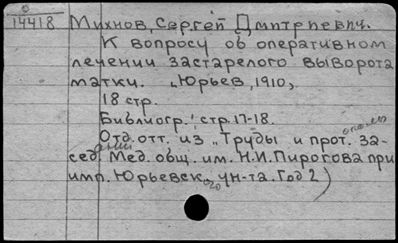 14418 Михнов, Сергей Дмитриевич.
К вопросу об оперативном
лечении застарелого выворота
матки. Юрьев, 1910,
18 стр.
Библиогр.: стр. 17-18.
Отд. отт. из „Труды и прот. за-
сед. Мед. общ. им. Н.И. Пирогова при
имп. Юрьевск. ун-та. Год 2)